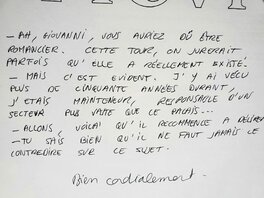 - AH, GIOVANNI, VOUS AURIEZ DÛ ÊTRE
ROMANCIER. CETTE TOUR, ON JURERAIT
PARFOIS QU'ELLE A RÉELLEMENT EXISTÉ.
- MAIS C'EST EVIDENT. J'Y AI VÉCU
PLUS DE CINQUANTE ANNÉES DURANT,
J'ETAIS MAINTENEUR, RESPONSABLE D'UN
SECTEUR PLUS VASTE QUE LE PALAIS...
- ALLONS, VOILÀ QU'IL RECOMMENCE A DÉLIRER
- TU SAIS BIEN QU'IL NE FAUT JAMAIS LE
CONTREDIRE SUR CE SUJET.
Bien cordialement.